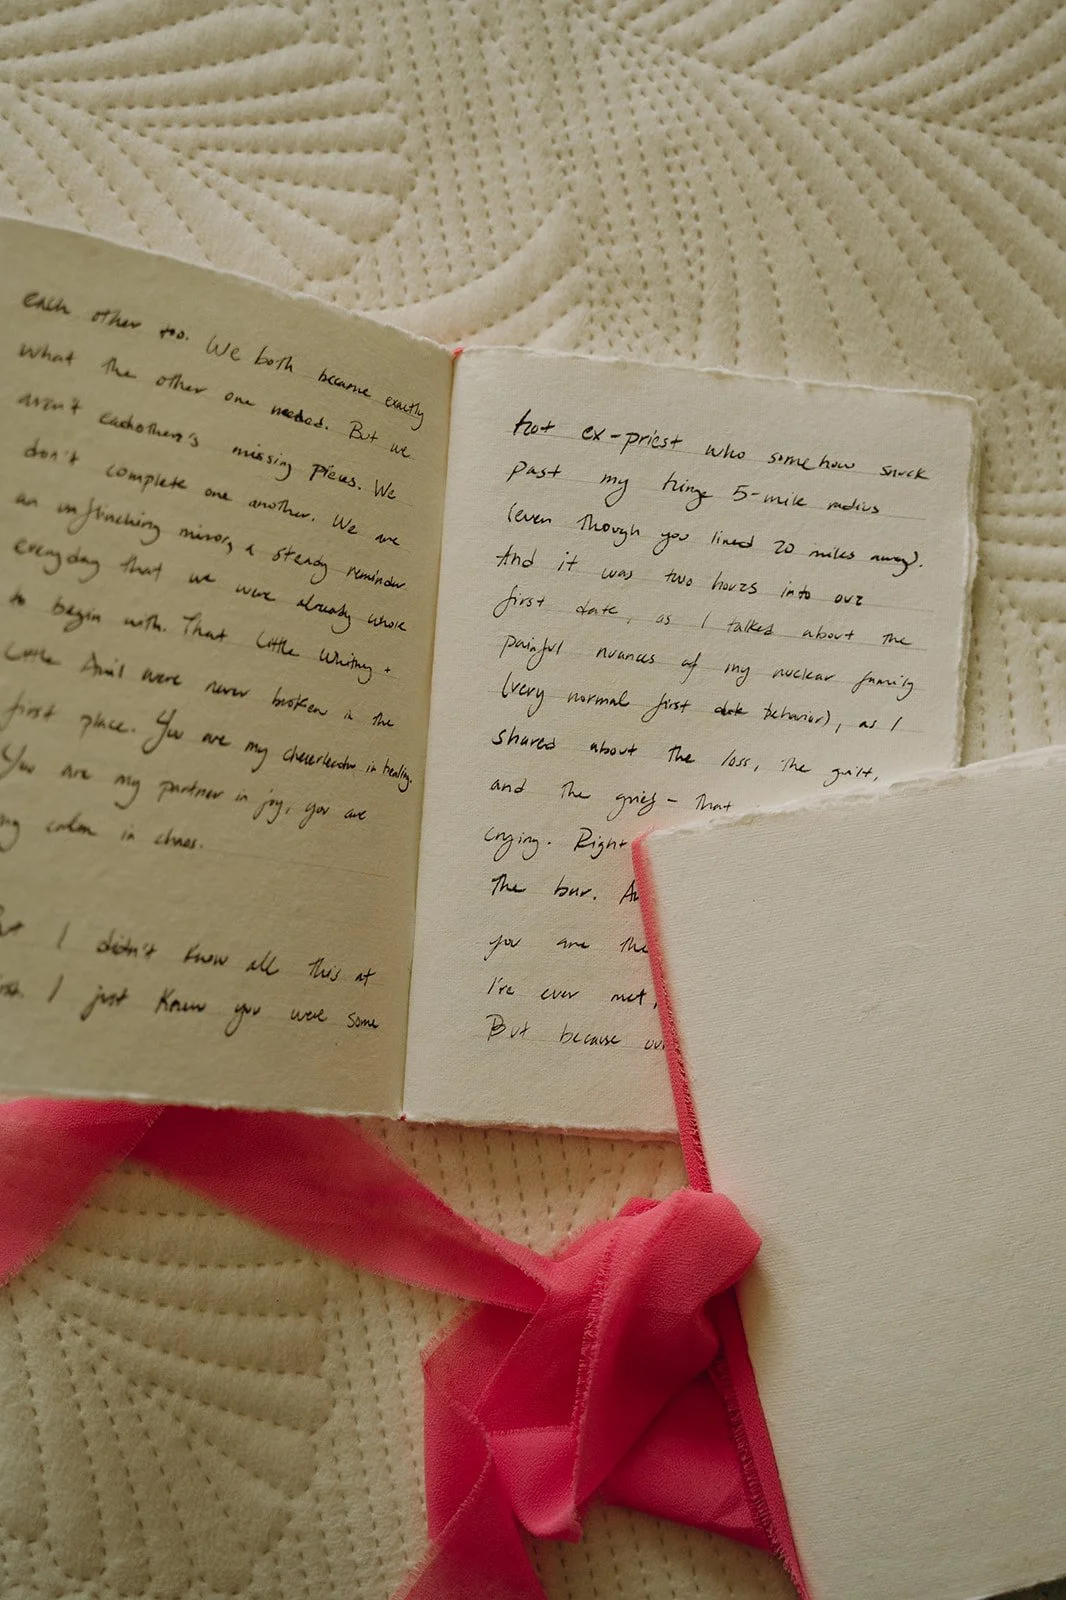 each other too. We both became exactly
what the other one needed. But we
aren't eachother's missing pieces. We
don't complete one another. We are
an unflinching mirror, a steady reminder
everyday that we were already whole
to begin with. That Little Whitney +
Little were never broken in the
first place. You are my cheerleader in healing.
You are my partner in joy, you are
my calm in chaos.
But I didn't know all this at
first. I just knew you were some
hot ex-priest who somehow snuck
past my hinge 5-mile radius
(even though you lived 20 miles away).
And it was two hours into our
first date, as I talked about the
painful nuances of my nuclear family
(very normal first date behavior), as I
shared about the loss, the guilt,
and the grief - that
crying. Right
the bar.
you are the
I've ever met,
But because